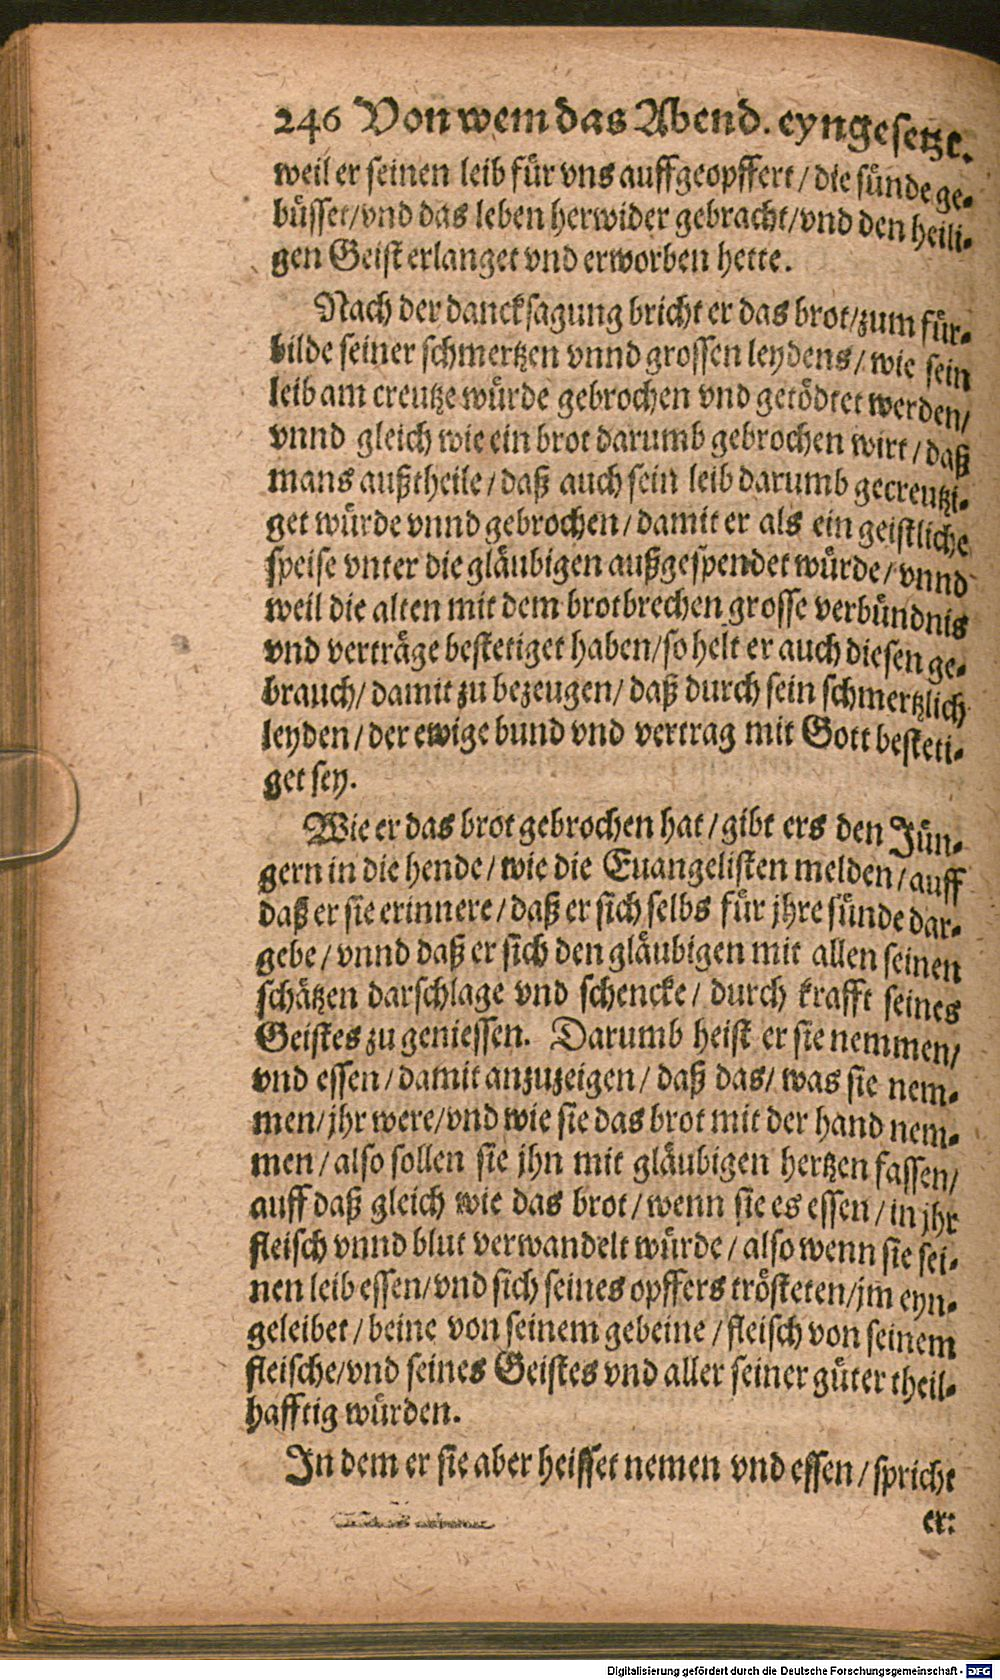 246 Von wem das Abend. eyngesetze.
weil er seinen leib für vns auffgeopffert / die sünde ge-
büsset/vnd das leben herwider gebracht/vnd den heili-
gen Geist erlanget vnd erworben hette.
Nach der dancksagung bricht er das brot/zum für-
bilde seiner schmertzen vnnd grossen leydens / wie sein
leib am creutze würde gebrochen vnd getödtet werden/
vnnd gleich wie ein brot darumb gebrochen wirt / daß
mans außtheile / daß auch sein leib darumb gecreutzi-
get würde vnnd gebrochen / damit er als ein geistliche
speise vnter die gläubigen außgespendet würde / vnnd
weil die alten mit dem brotbrechen grosse verbündnis
vnd verträge bestetiget haben/so helt er auch diesen ge-
brauch / damit zu bezeugen / daß durch sein schmertzlich
leyden / der ewige bund vnd vertrag mit Gott besteti-
get sey.
Wie er das brot gebrochen hat / gibt ers den Jün-
gern in die hende / wie die Euangelisten melden / auff
daß er sie erinnere / daß er sich selbs für jhre sünde dar-
gebe / vnnd daß er sich den gläubigen mit allen seinen
schätzen darschlage vnd schencke / durch krafft seines
Geistes zu geniessen. Darumb heist er sie nemmen/
vnd essen / damit anzuzeigen / daß das / was sie nem-
men/jhr were/vnd wie sie das brot mit der hand nem-
men / also sollen sie jhn mit gläubigen hertzen fassen/
auff daß gleich wie das brot / wenn sie es essen / in jhr
fleisch vnnd blut verwandelt würde / also wenn sie sei-
nen leib essen/vnd sich seines opffers trösteten/jm eyn-
geleibet / beine von seinem gebeine / fleisch von seinem
fleische/vnd seines Geistes vnd aller seiner güter theil-
hafftig würden.
In dem er sie aber heisset nemen vnd essen / spricht
er:
Digitalisierung gefördert durch die Deutsche Forschungsgemeinschaft - DFG